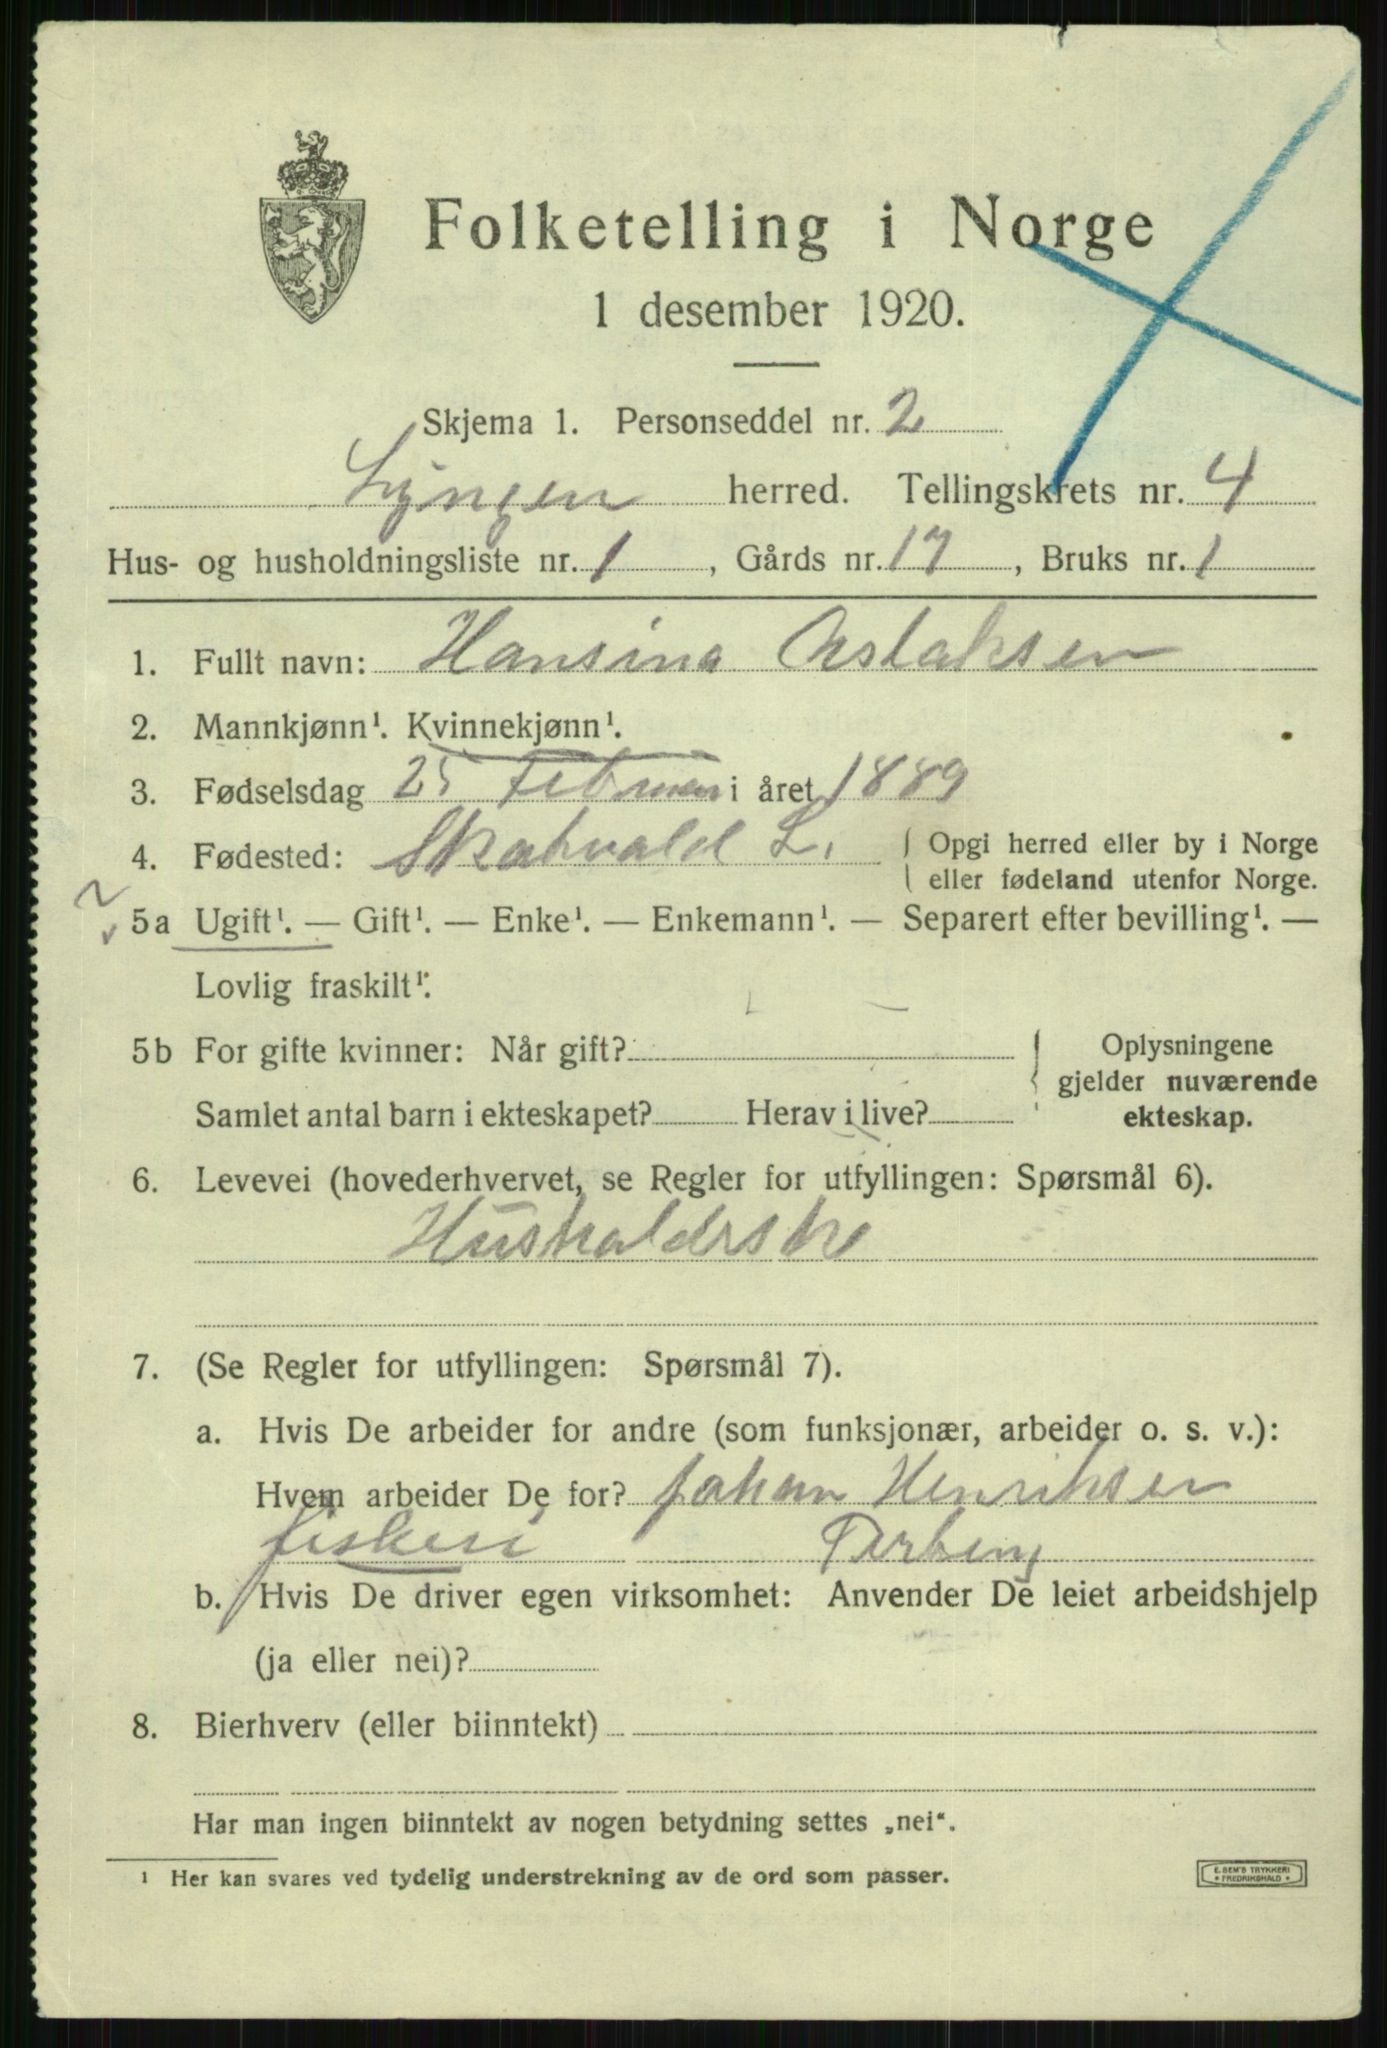 Folketelling i Norge
1 desember 1920.
Skjema 1. Personseddel nr. 2
Lyngen herred. Tellingskrets nr. 4
Hus- og husholdningsliste nr. 1, Gårds nr. 17, Bruks nr. 1
1. Fullt navn: Hansina Aslaksen
2. Mannkjønn¹. Kvinnekjønn¹.
3. Fødselsdag 25 Februar i året 1889
4. Fødested: L. { Opgi herred eller by i Norge
eller fødeland utenfor Norge.
5a Ugift¹. — Gift¹. — Enke¹. — Enkemann¹. — Separert efter bevilling¹. —
Lovlig fraskilt¹.
5b For gifte kvinner: Når gift? { Oplysningene
gjelder nuværende
Samlet antal barn i ekteskapet? Herav i live? ekteskap.
6. Levevei (hovederhvervet, se Regler for utfyllingen: Spørsmål 6).
Husholderske
7. (Se Regler for utfyllingen: Spørsmål 7).
a. Hvis De arbeider for andre (som funksjonær, arbeider o. s. v.):
Hvem arbeider De for? Johan Henriksen
fiskeri
b. Hvis De driver egen virksomhet: Anvender De leiet arbeidshjelp
(ja eller nei)?
8. Bierhverv (eller biinntekt)
Har man ingen biinntekt av nogen betydning settes „nei“.
¹ Her kan svares ved tydelig understrekning av de ord som passer.
E. SEM'S TRYKKERI
• FREDRIKSHALD •